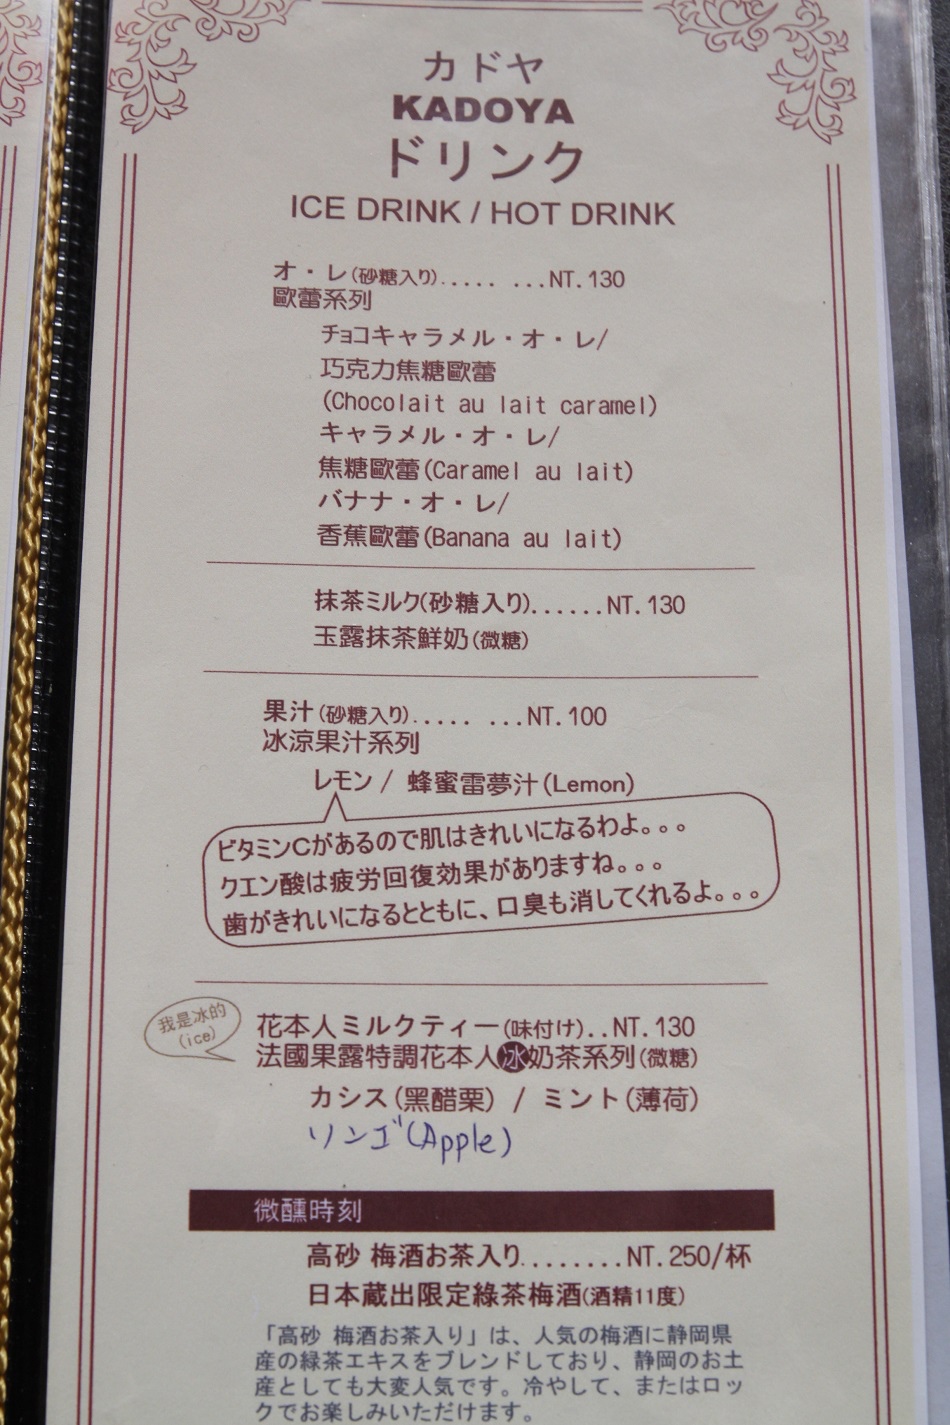 カドヤ
KADOYA
ドリンク
ICE DRINK / HOT DRINK
オ・レ(砂糖入り)..... ...NT.130
歐蕾系列
チョコキャラメル・オ・レ/
巧克力焦糖歐蕾
(Chocolait au lait caramel)
キャラメル・オ・レ/
焦糖歐蕾(Caramel au lait)
バナナ・オ・レ/
香蕉歐蕾(Banana au lait)
抹茶ミルク(砂糖入り)......NT.130
玉露抹茶鮮奶(微糖)
果汁(砂糖入り)..... ...NT.100
冰涼果汁系列
レモン / 蜂蜜雷夢汁(Lemon)
ビタミンCがあるので肌はきれいになるわよ。。。
クエン酸は疲労回復効果がありますね。。。
歯がきれいになるとともに、口臭も消してくれるよ。。。
我是冰的
(ice)
花本人ミルクティー(味付け)..NT.130
法國果露特調花本人冰奶茶系列(微糖)
カシス(黑醋栗) / ミント(薄荷)
リンゴ(Apple)
微醺時刻
高砂 梅酒お茶入り........NT.250/杯
日本蔵出限定綠茶梅酒(酒精11度)
「高砂 梅酒お茶入り」は、人気の梅酒に静岡県
産の緑茶エキスをブレンドしており、静岡のお土
産としても大変人気です。冷やして、またはロッ
クでお楽しみいただけます。